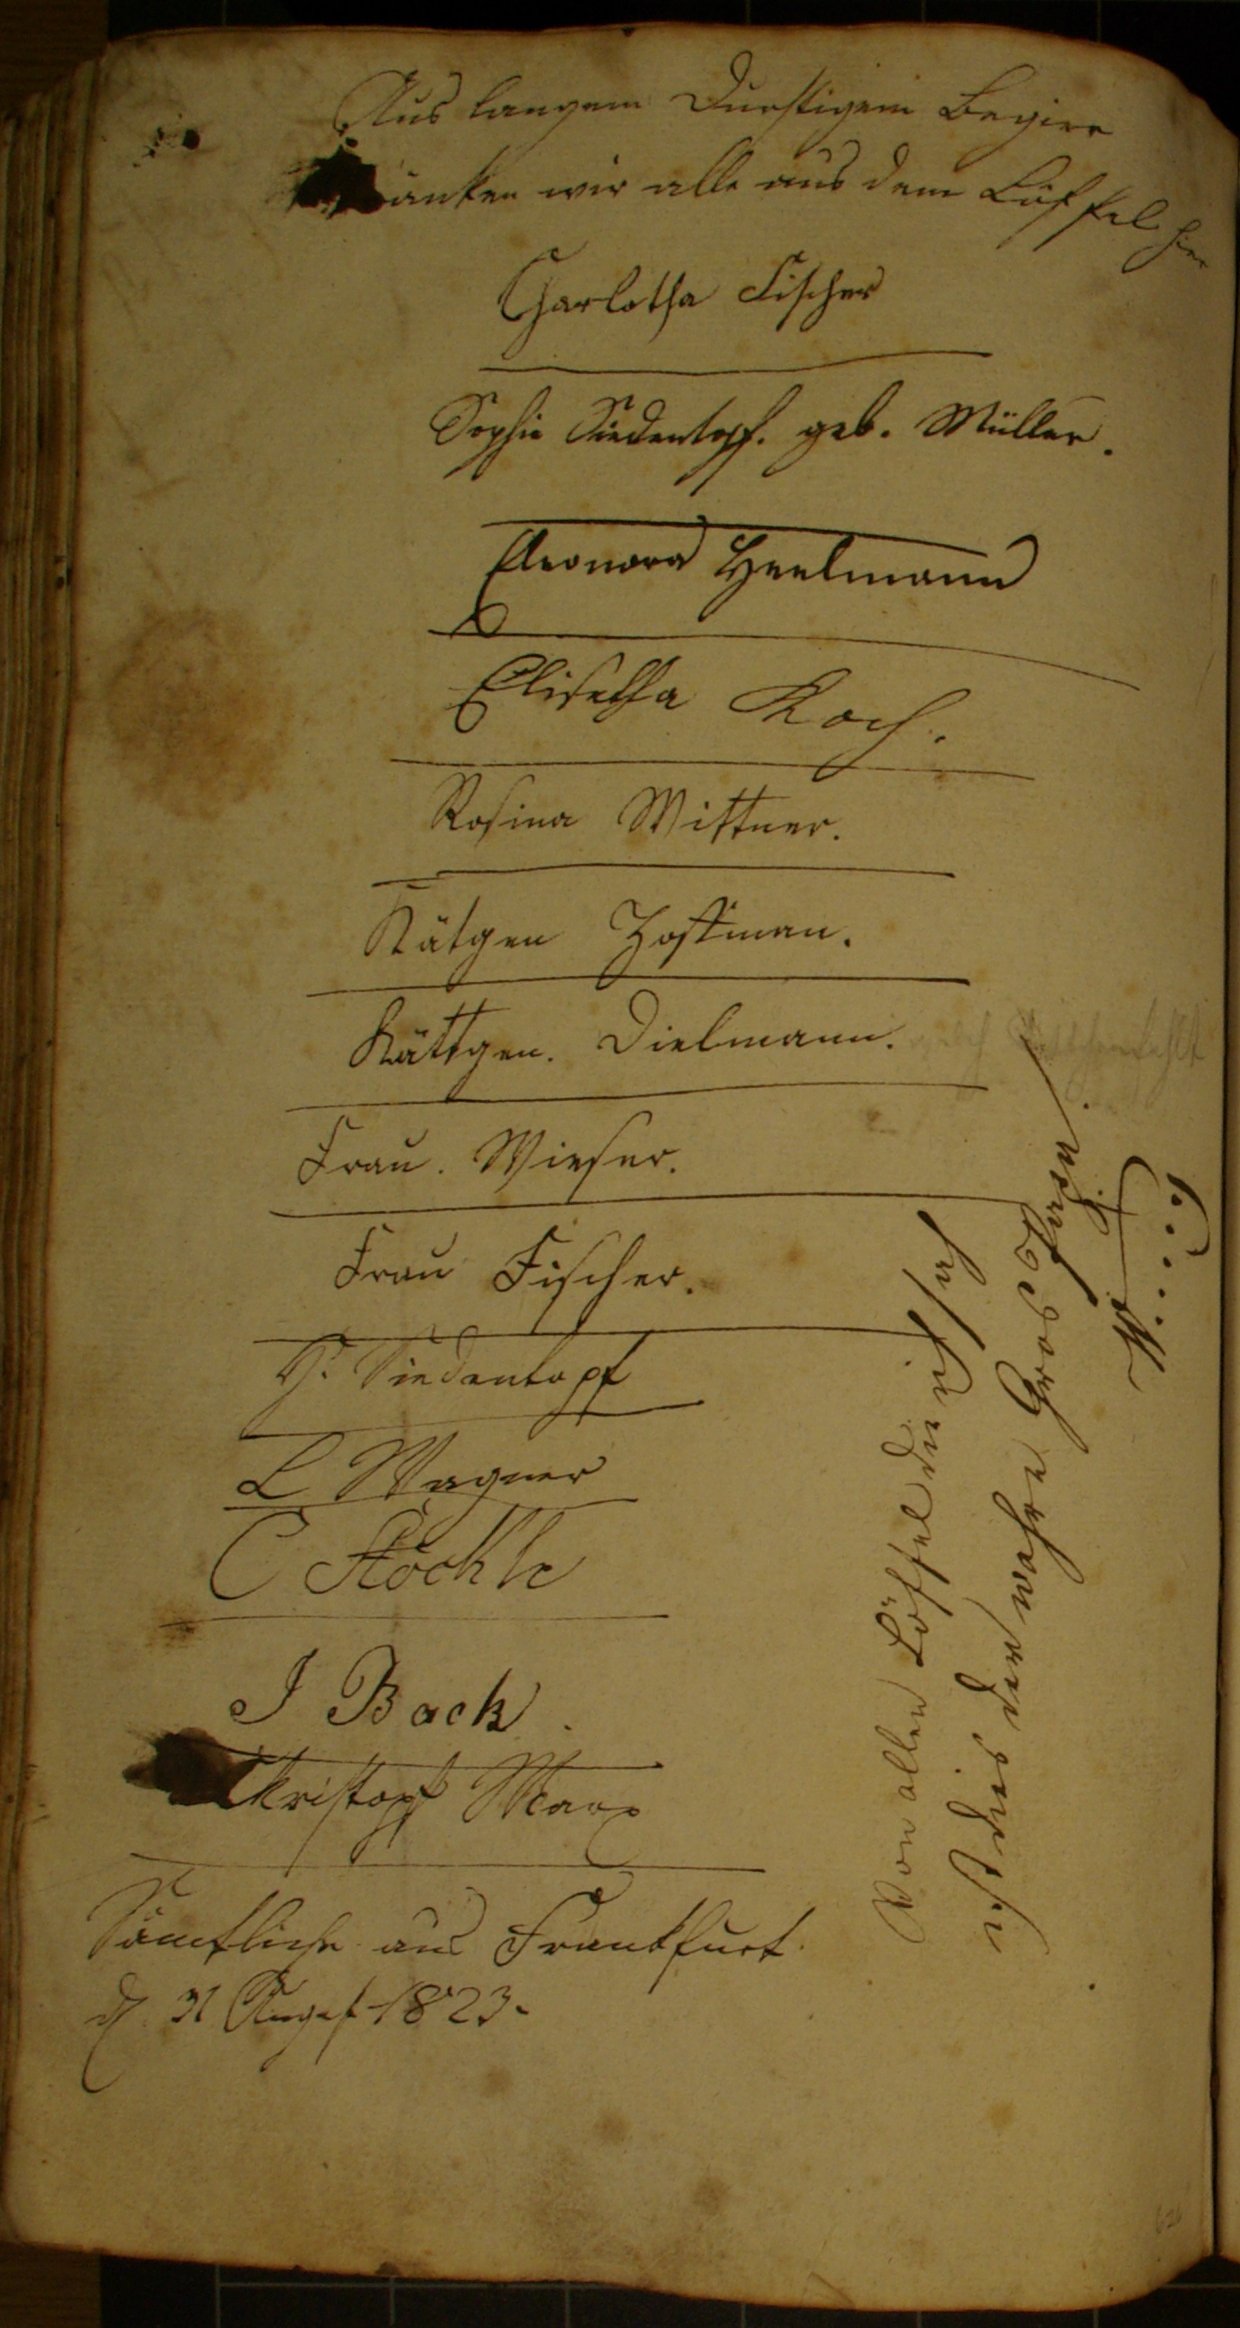 Aus langem Durstigem Begirr
änken wir alle aus dem Löffel hir
Charlotha Fischer
Sophie Siedentopf. geb. Müller.
Eleonora
Elisetha Koch.
Rosina Wittner.
Kätgen Hoffman.
Kättgen. Dielmann.
Frau. Wieser.
Frau Fischer.
Siedentopf
L Wagner
C Stöckle
J Back.
Christoph Marx
Sämtliche aus Frankfurt.
d. 31 Augst 1823.
Von allen Löffel die ich sah
ist dies der wahre